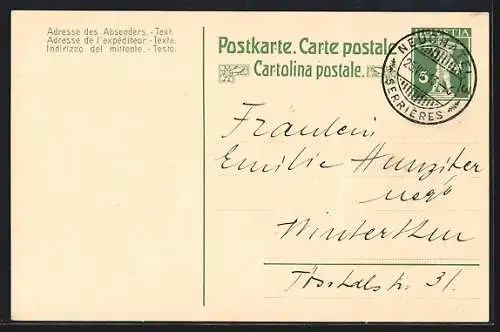 Adresse des Absenders. - Text.
Adresse de l'expéditeur - Texte.
Indirizzo del mittente. - Testo.
Postkarte. Carte postale.
Cartolina postale.
HELVETIA
5
NEUCHATEL
SERRIÈRES
Fräulein
Emilie Hunziker
Winterthur
Tösstalstr. 31.